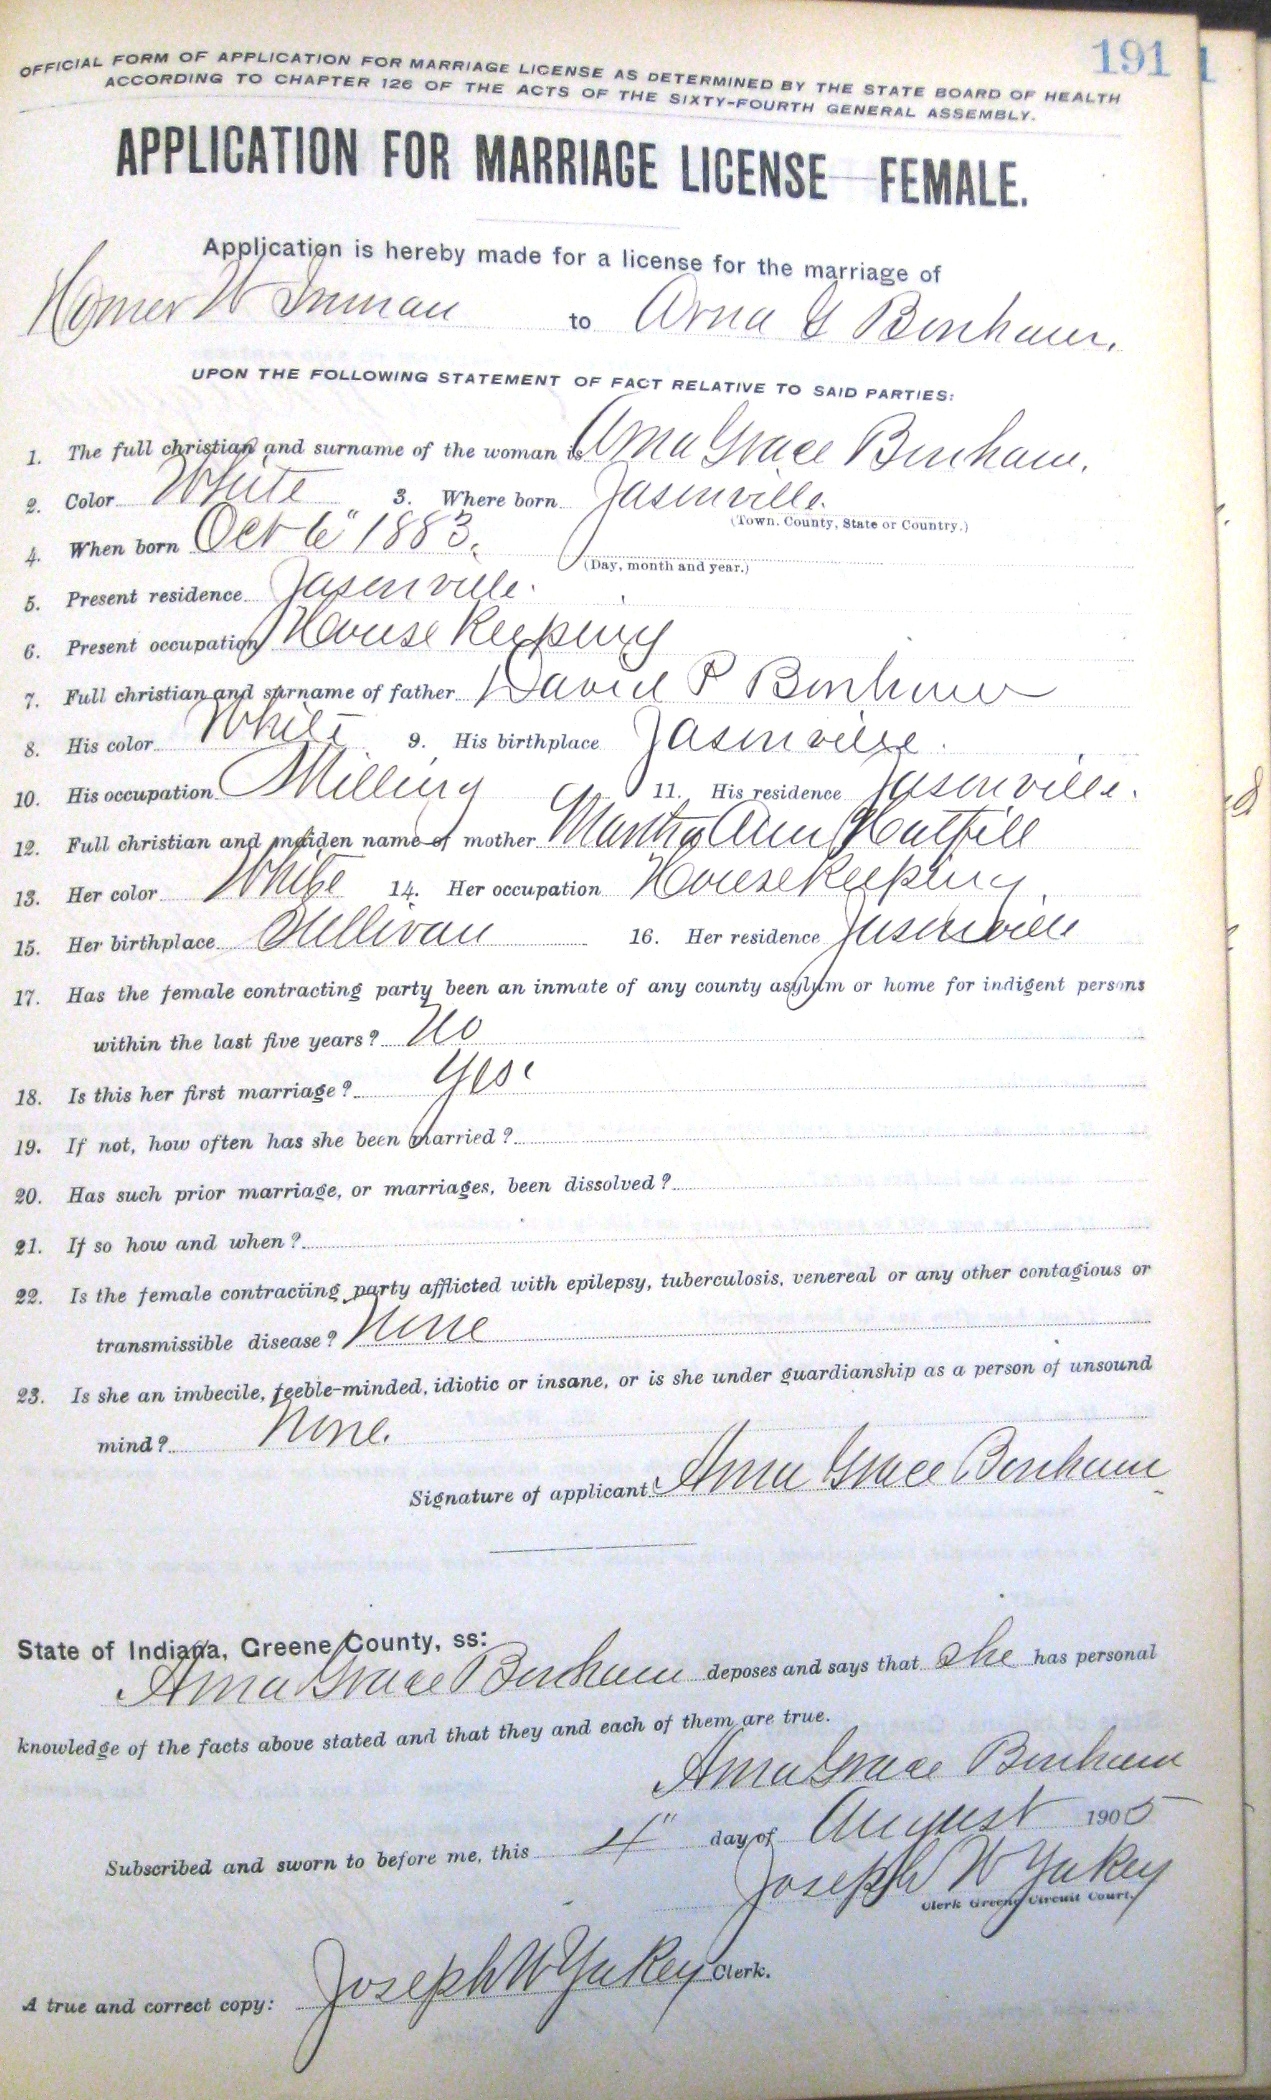 191
OFFICIAL FORM OF APPLICATION FOR MARRIAGE LICENSE AS DETERMINED BY THE STATE BOARD OF HEALTH
ACCORDING TO CHAPTER 126 OF THE ACTS OF THE SIXTY-FOURTH GENERAL ASSEMBLY.
APPLICATION FOR MARRIAGE LICENSE—FEMALE.
Application is hereby made for a license for the marriage of
Homer W Inman to Arna G Bonham.
UPON THE FOLLOWING STATEMENT OF FACT RELATIVE TO SAID PARTIES:
1. The full christian and surname of the woman is Arna Grace Bonham.
2. Color White 3. Where born Jasonville.
(Town, County, State or Country.)
4. When born Oct 6" 1883.
(Day, month and year.)
5. Present residence Jasonville.
6. Present occupation House Keeping
7. Full christian and surname of father David P Bonham
8. His color White 9. His birthplace Jasonville.
10. His occupation Milling 11. His residence Jasonville.
12. Full christian and maiden name of mother Martha Ann Hatfill
13. Her color White 14. Her occupation House Keeping.
15. Her birthplace Sullivan 16. Her residence Jasonville
17. Has the female contracting party been an inmate of any county asylum or home for indigent persons
within the last five years? No
18. Is this her first marriage? Yes.
19. If not, how often has she been married?
20. Has such prior marriage, or marriages, been dissolved?
21. If so how and when?
22. Is the female contracting party afflicted with epilepsy, tuberculosis, venereal or any other contagious or
transmissible disease? None
23. Is she an imbecile, feeble-minded, idiotic or insane, or is she under guardianship as a person of unsound
mind? None.
Signature of applicant: Arna Grace Bonham
State of Indiana, Greene County, ss:
Arna Grace Bonham deposes and says that she has personal
knowledge of the facts above stated and that they and each of them are true.
Arna Grace Bonham
Subscribed and sworn to before me, this 4" day of August 1905
Joseph W Yakey
Clerk Greene Circuit Court.
A true and correct copy: Joseph W Yakey Clerk.